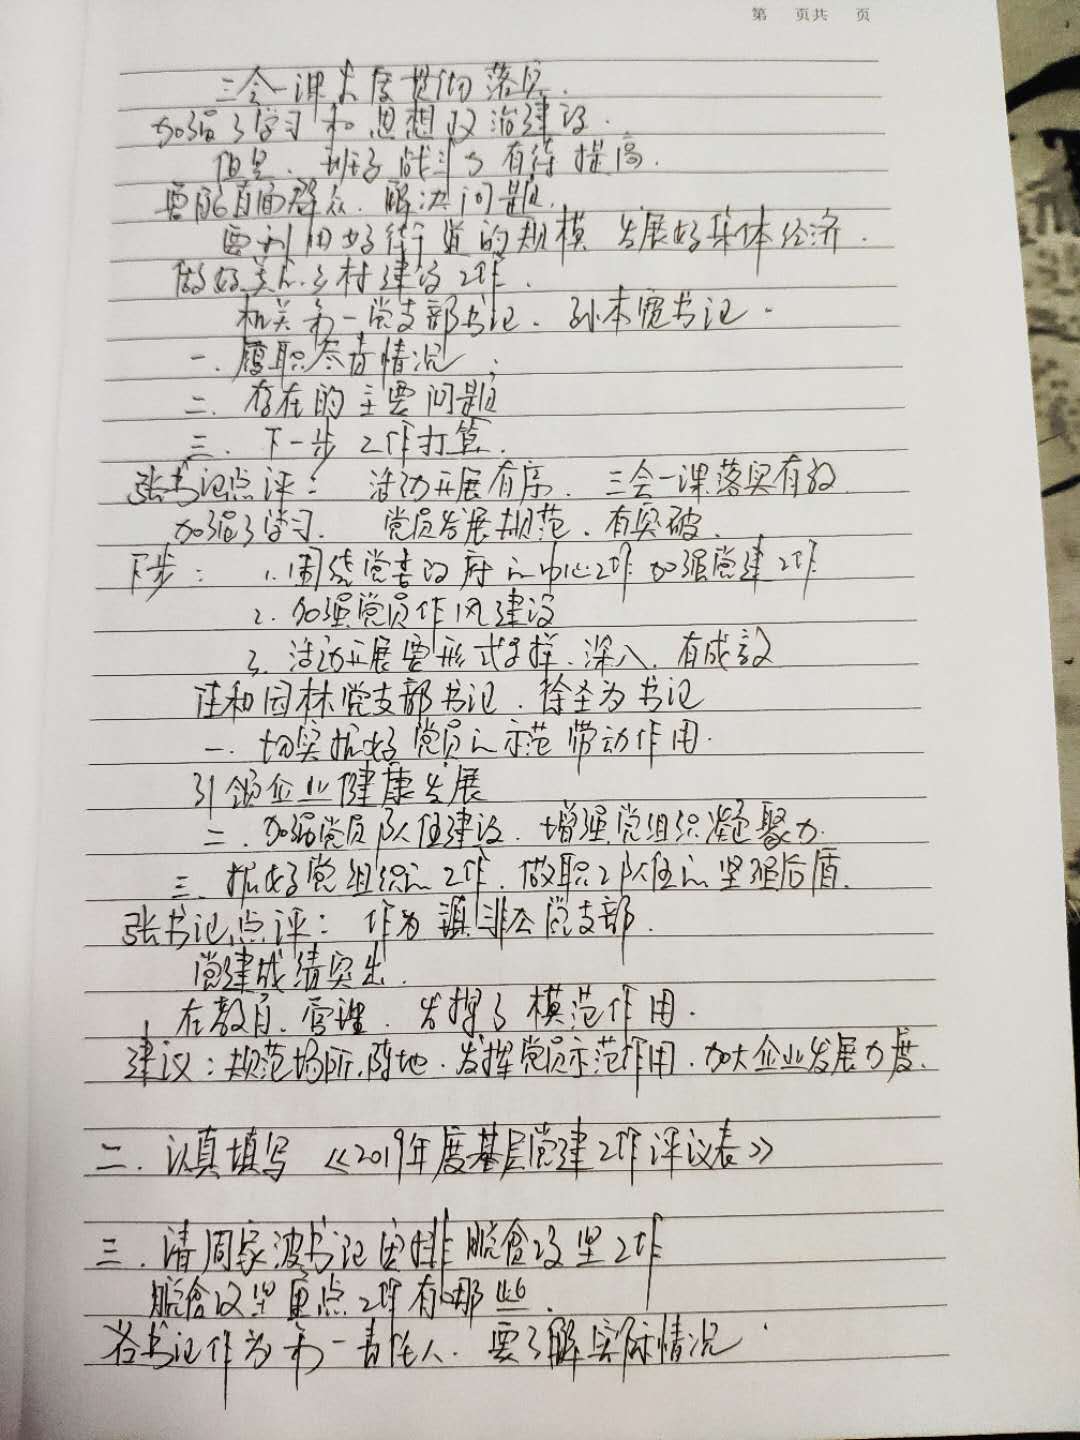 第 页共 页
三会一课制度贯彻落实.
加强了学习和思想政治建设.
但是、班子战斗力有待提高.
要能直面群众、解决问题.
要利用好街道的规模 发展好集体经济.
做好美丽乡村建设工作.
机关第一党支部书记、孙本宽书记.
一、履职尽责情况;
二、存在的主要问题
三、下一步工作打算.
张书记点评: 活动开展有序、三会一课落实有效
加强了学习、 党员发展规范、有突破.
下步: 1.围绕党委政府的中心工作加强党建工作
2.加强党员作风建设
3、活动开展要形式多样、深入、有成效
佳和园林党支部书记、徐圣为书记
一、切实抓好党员的示范带动作用.
引领企业健康发展
二、加强党员队伍建设、增强党组织凝聚力.
三、抓好党组织的工作、做职工队伍的坚强后盾.
张书记点评: 作为镇非公党支部.
党建成绩突出.
在教育、管理、发挥了模范作用.
建议:规范场所、阵地、发挥党员示范作用、加大企业发展力度.
二、认真填写《2019年度基层党建工作评议表》
三、请周家波书记安排脱贫攻坚工作
脱贫攻坚重点工作有哪些.
各书记作为第一责任人、要了解实际情况.